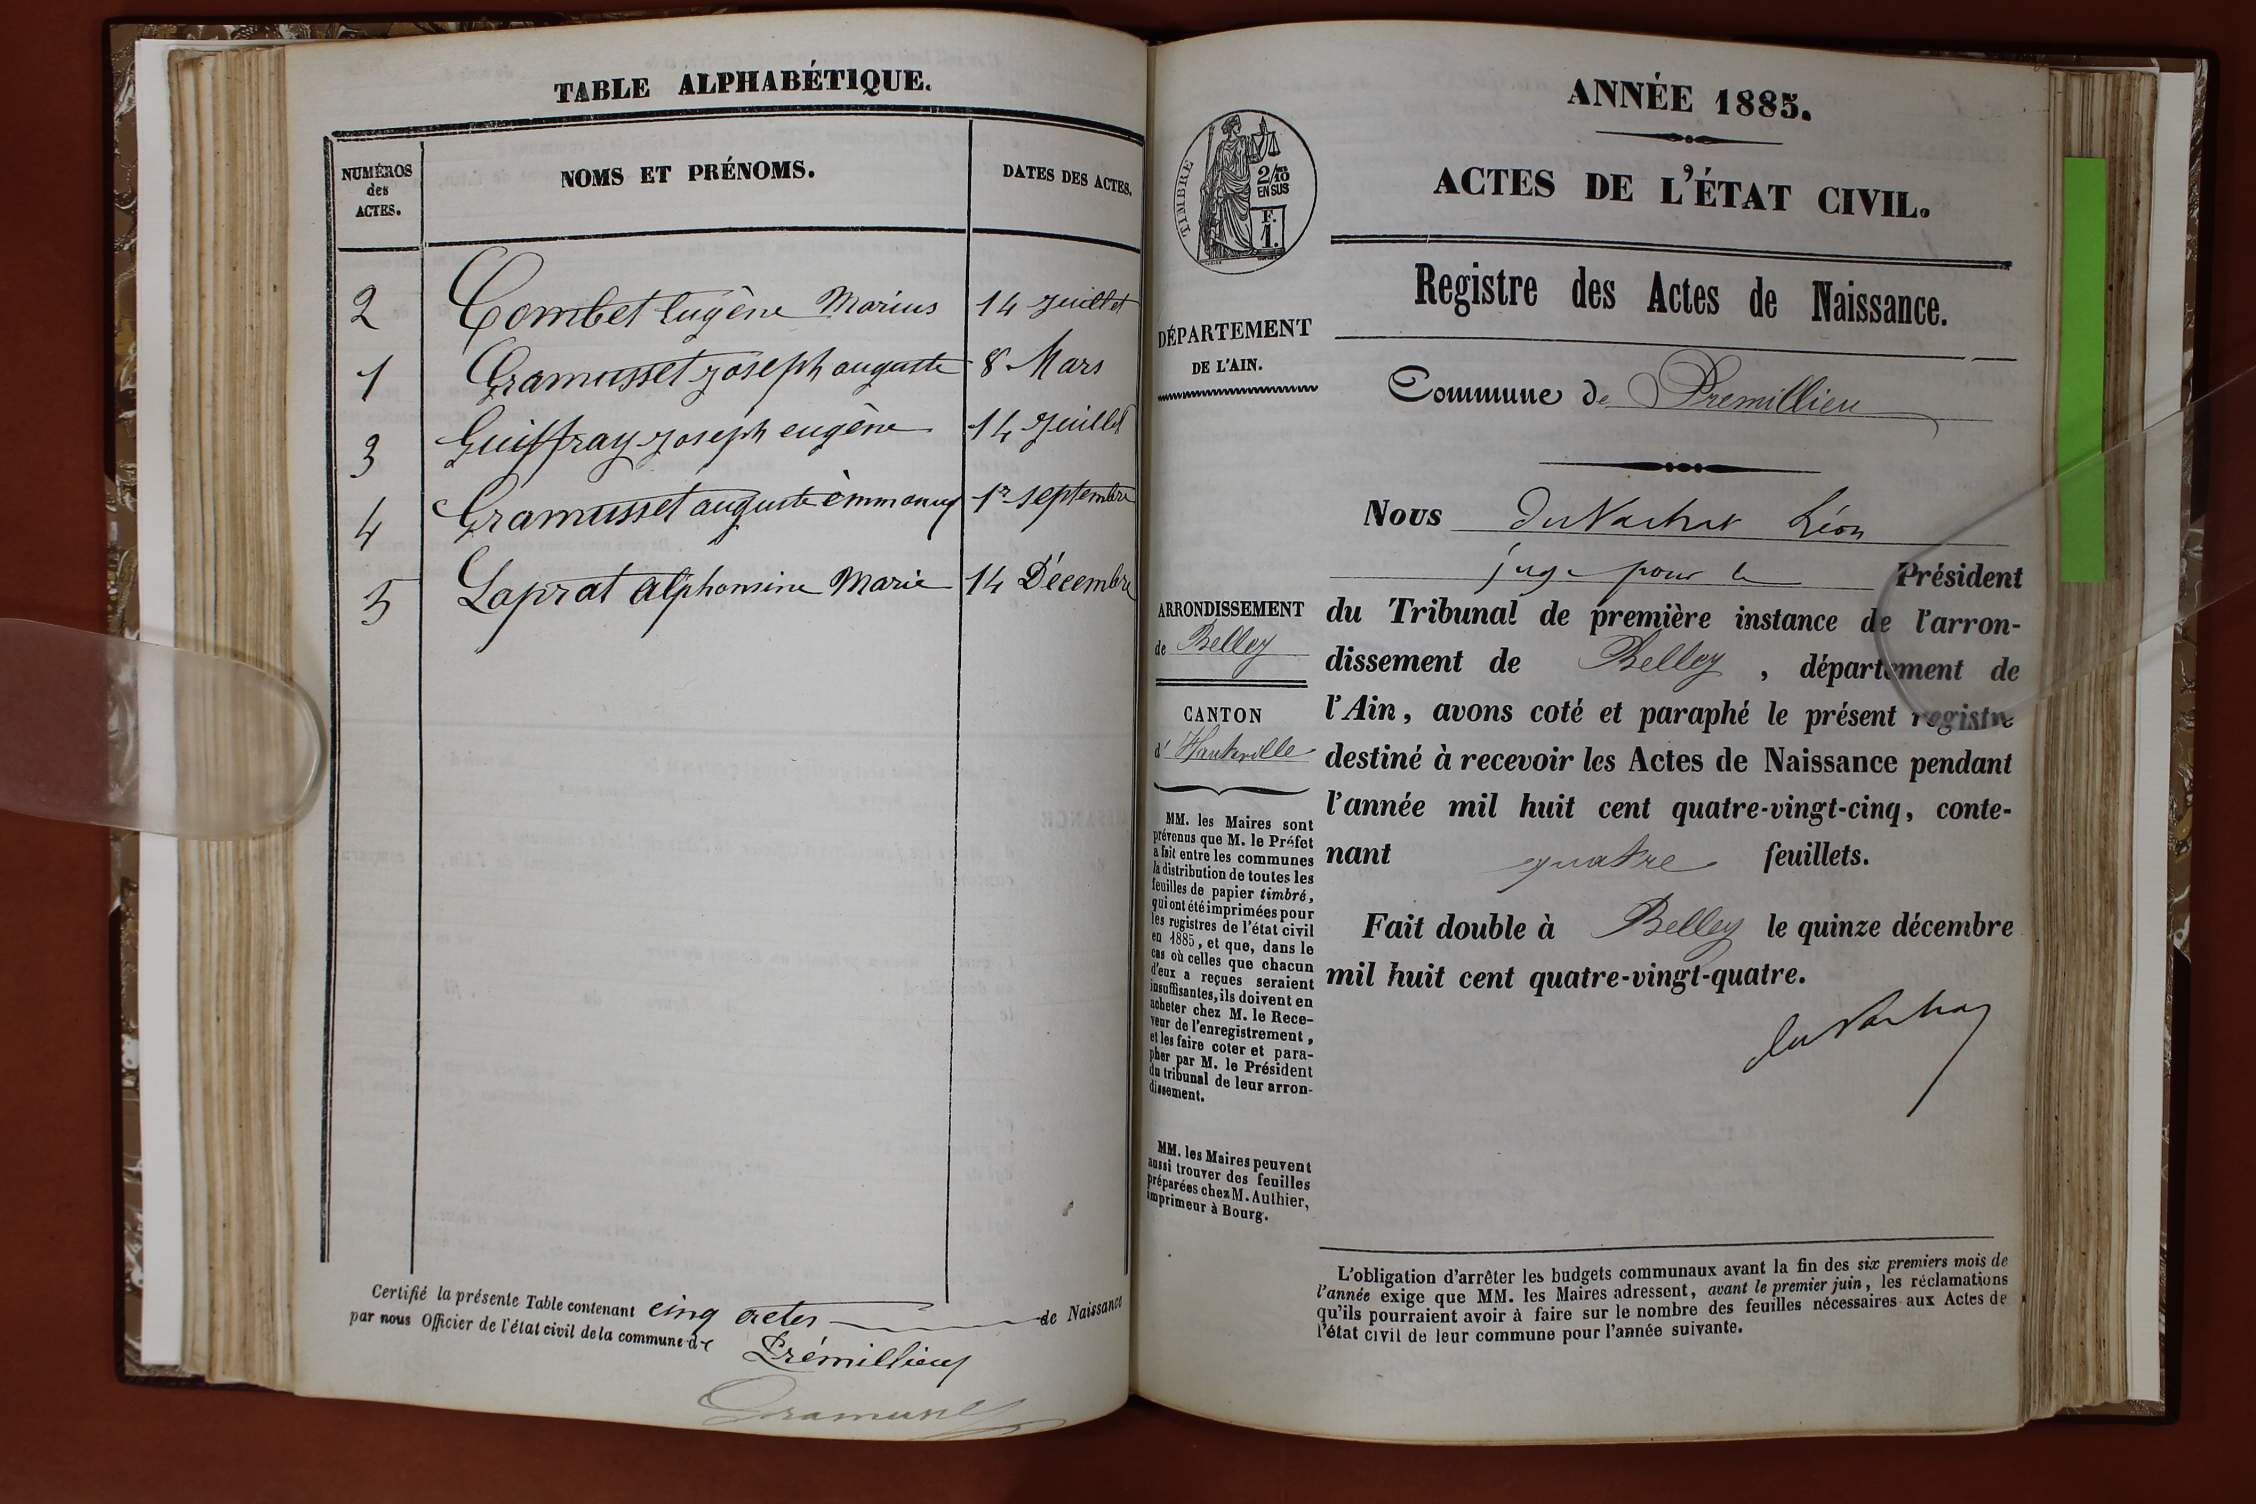 TABLE ALPHABÉTIQUE.
NUMÉROS
des
ACTES.
NOMS ET PRÉNOMS.
DATES DES ACTES.
2 Combet Eugène Marius 14 Juillet
1 Gramusset Joseph auguste 8 Mars
3 Guiffray Joseph eugène 14 Juillet
4 Gramusset auguste emmanuel 1er septembre
5 Laprat Alphonsine Marie 14 Décembre
Certifié la présente Table contenant cinq actes de Naissance
par nous Officier de l'état civil de la commune de
Prémillieu
ANNÉE 1885.
ACTES DE L'ÉTAT CIVIL.
TIMBRE
2/10
EN SUS
F.
1.
Registre des Actes de Naissance.
DÉPARTEMENT
DE L'AIN.
Commune de Premillieu
Nous Léon
juge pour le Président
ARRONDISSEMENT
de Belley
CANTON
d' Hauteville
du Tribunal de première instance de l'arron-
dissement de Belley, département de
l'Ain, avons coté et paraphé le présent registre
destiné à recevoir les Actes de Naissance pendant
l'année mil huit cent quatre-vingt-cinq, conte-
nant quatre feuillets.
Fait double à Belley le quinze décembre
mil huit cent quatre-vingt-quatre.
MM. les Maires sont
prévenus que M. le Préfet
a fait entre les communes
la distribution de toutes les
feuilles de papier timbré,
qui ont été imprimées pour
les registres de l'état civil
en 1885, et que, dans le
cas où celles que chacun
d'eux a reçues seraient
insuffisantes, ils doivent en
acheter chez M. le Rece-
veur de l'enregistrement,
et les faire coter et para-
pher par M. le Président
du tribunal de leur arron-
dissement.
MM. les Maires peuvent
aussi trouver des feuilles
préparées chez M. Authier,
imprimeur à Bourg.
L'obligation d'arrêter les budgets communaux avant la fin des six premiers mois de
l'année exige que MM. les Maires adressent, avant le premier juin, les réclamations
qu'ils pourraient avoir à faire sur le nombre des feuilles nécessaires aux Actes de
l'état civil de leur commune pour l'année suivante.